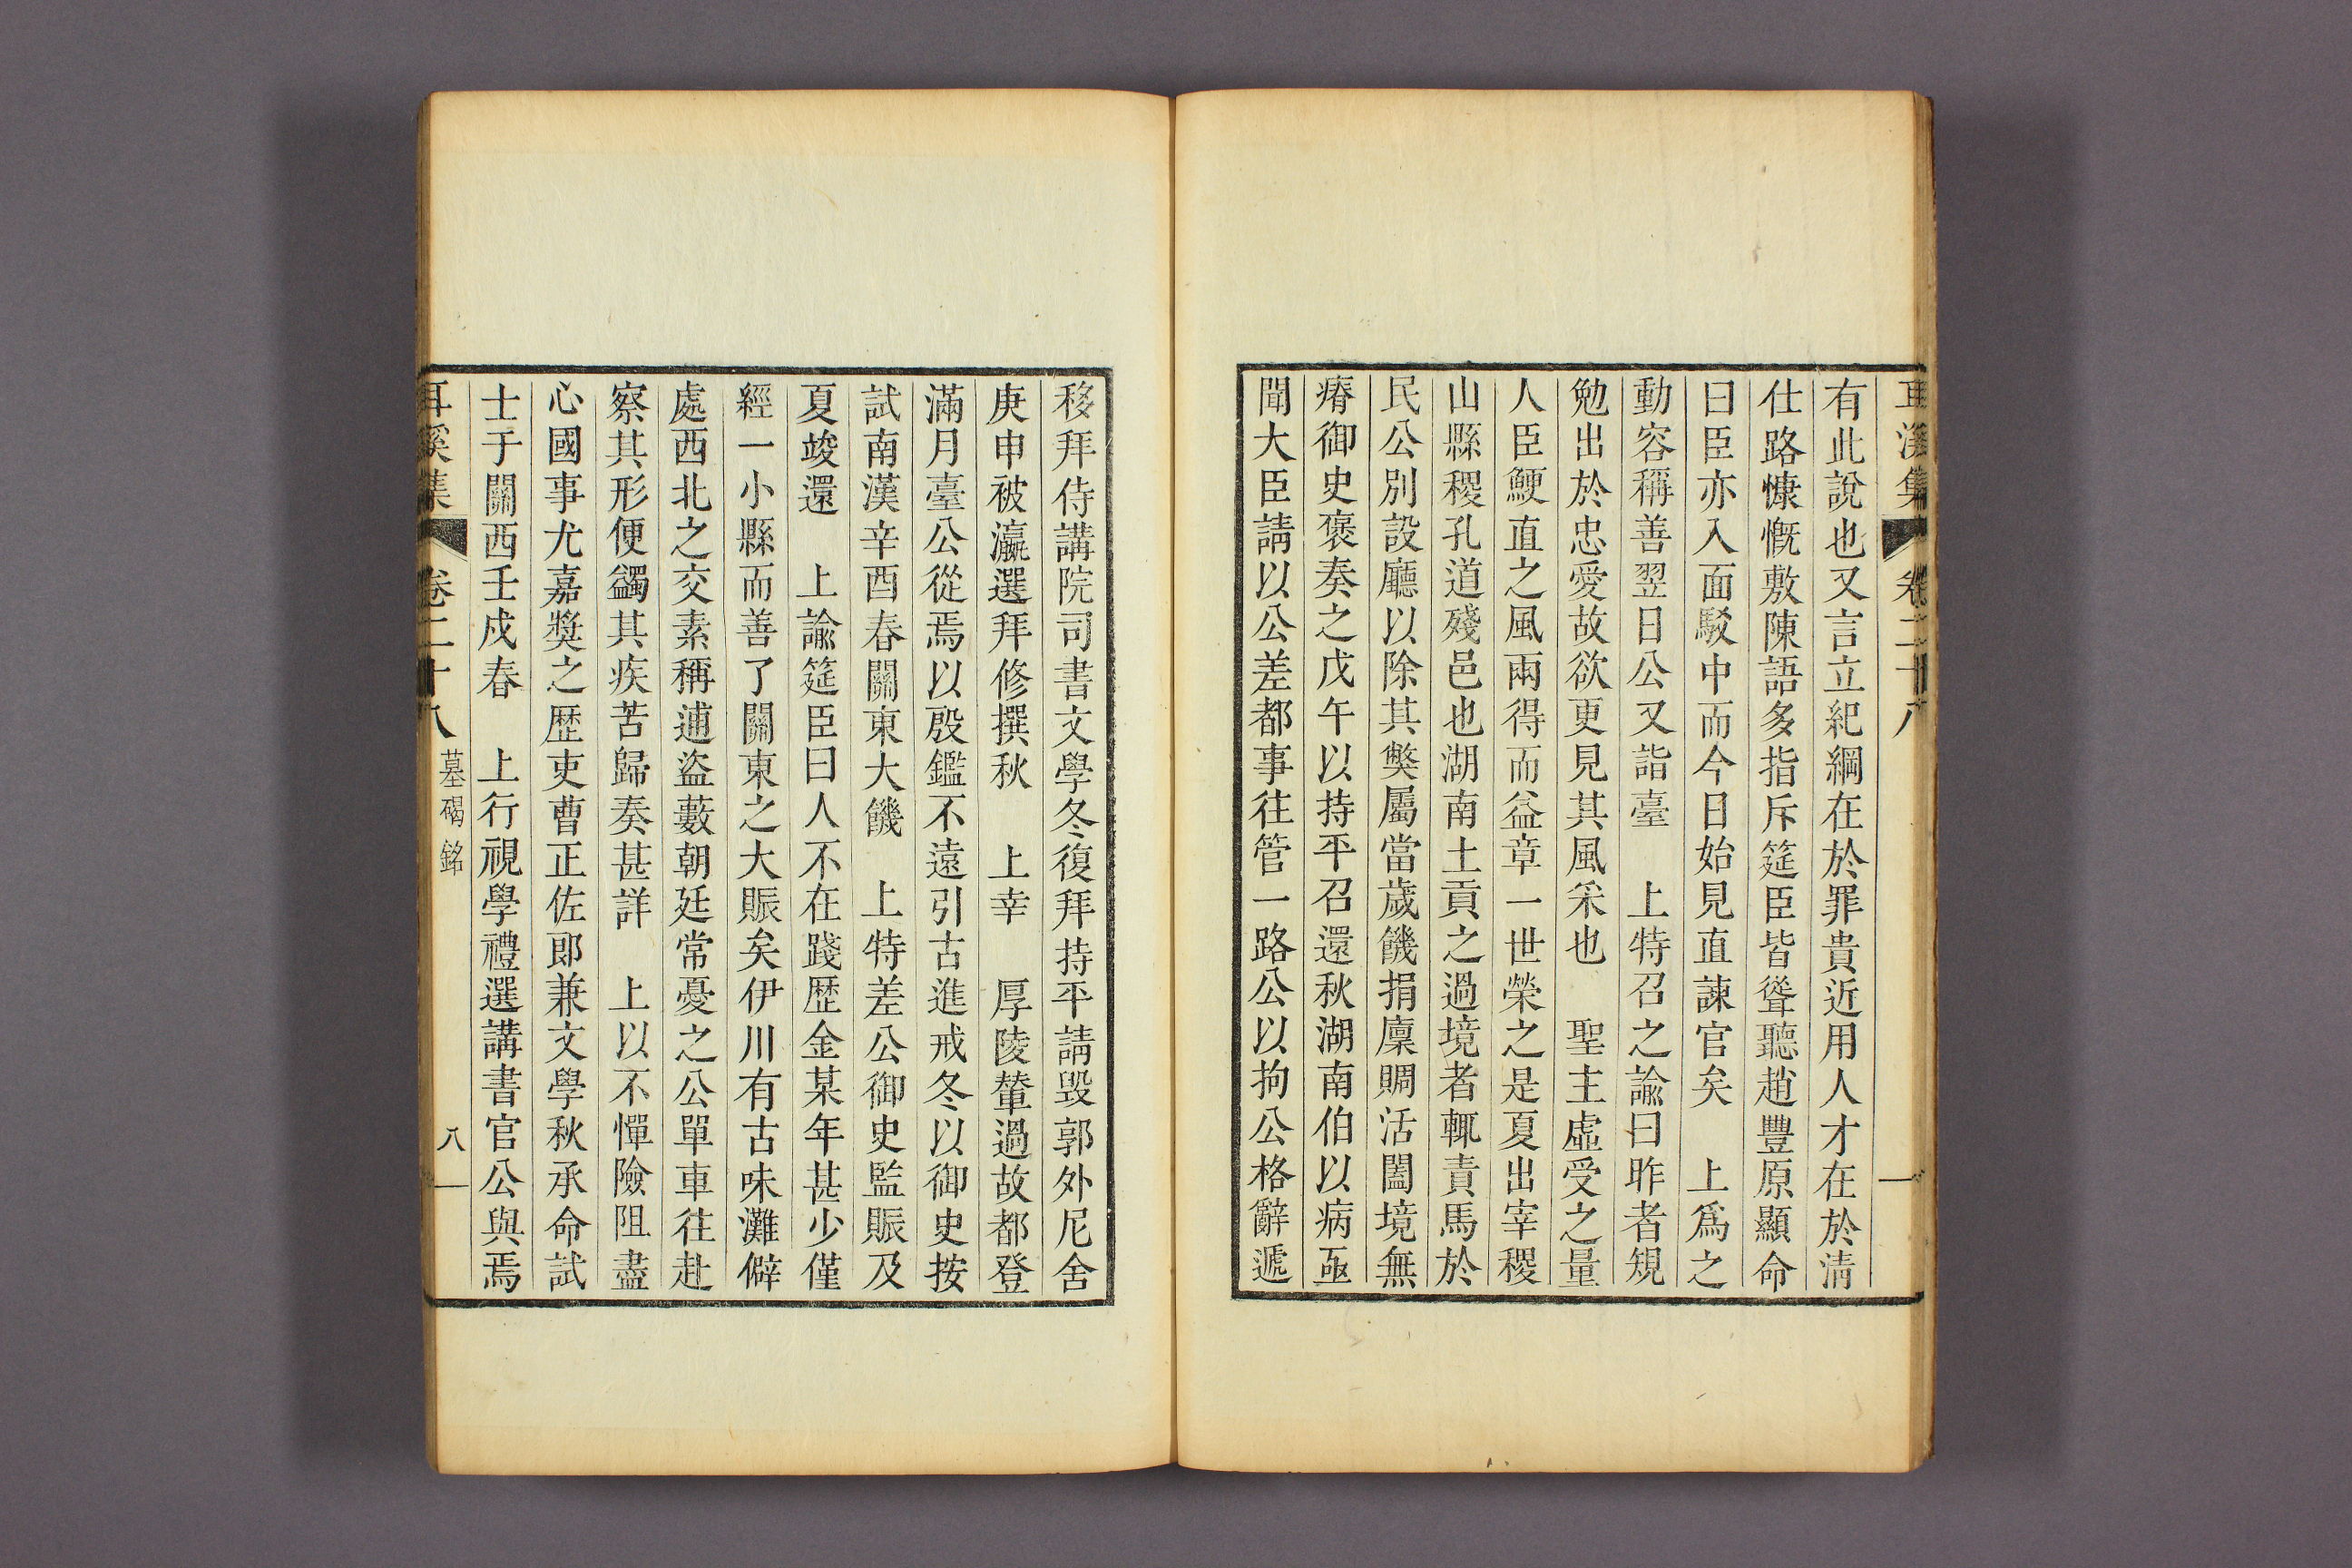 耳溪集 卷二十八
有此說也又言立紀綱在於罪貴近用人才在於淸
仕路慷慨敷陳語多指斥筵臣皆聳聽趙豐原顯命
曰臣亦入面駁中而今日始見直諫官矣 上爲之
動容稱善翌日公又詣臺 上特召之諭曰昨者規
勉出於忠愛故欲更見其風采也 聖主虛受之量
人臣鯁直之風兩得而益章一世榮之是夏出宰稷
山縣稷孔道殘邑也湖南土貢之過境者輒責馬於
民公別設廳以除其獘屬當歲饑捐廩賙活闔境無
瘠御史褒奏之戊午以持平召還秋湖南伯以病亟
聞大臣請以公差都事往管一路公以拘公格辭遞
移拜侍講院司書文學冬復拜持平請毀郭外尼舍
庚申被瀛選拜修撰秋 上幸 厚陵輦過故都登
滿月臺公從焉以殷鑑不遠引古進戒冬以御史按
試南漢辛酉春關東大饑 上特差公御史監賑及
夏竣還 上諭筵臣曰人不在踐歷金某年甚少僅
經一小縣而善了關東之大賑矣伊川有古味灘僻
處西北之交素稱逋盜藪朝廷常憂之公單車往赴
察其形便蠲其疾苦歸奏甚詳 上以不憚險阻盡
心國事尤嘉奬之歷吏曹正佐郞兼文學秋承命試
士于關西壬戌春 上行視學禮選講書官公與焉
耳溪集 卷二十八 墓碣銘 八